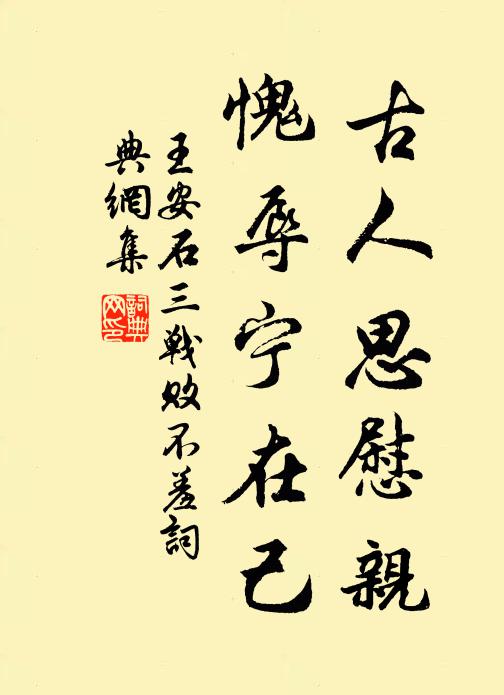 古人思慰親
愧辱宁在己
王安石三戰敗不羞詞
典網集
詞典
网印